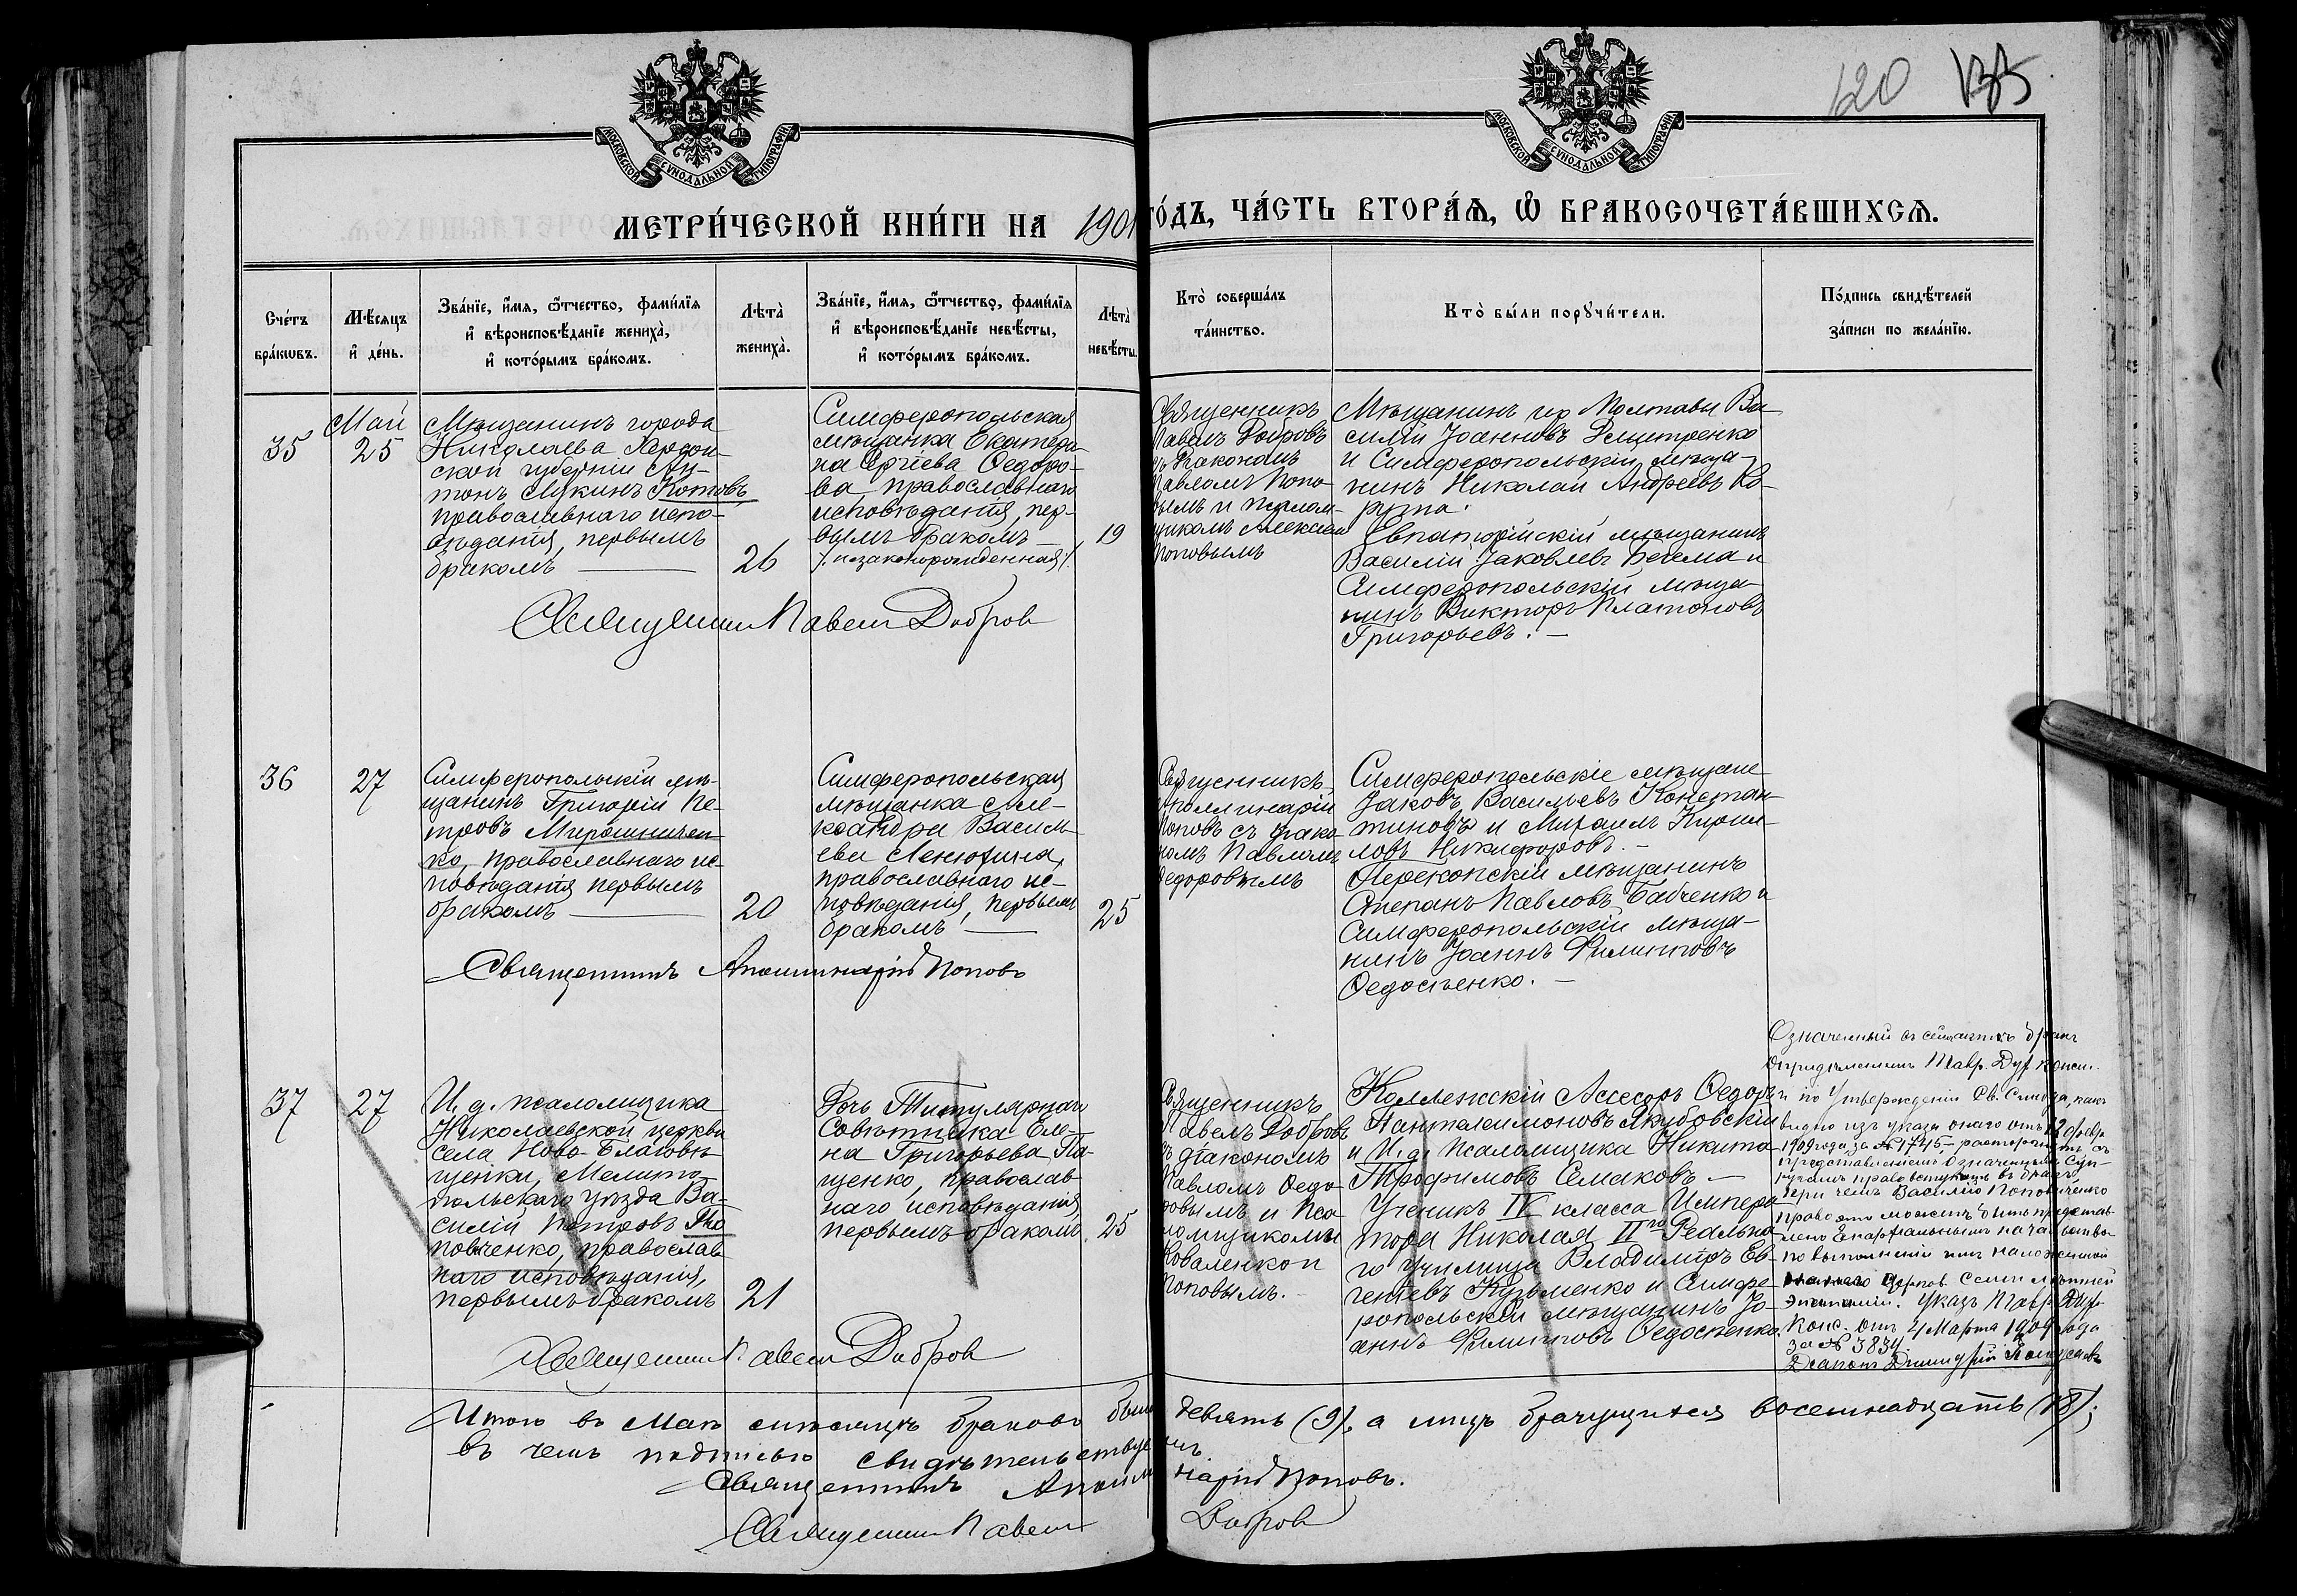 120 135
МОСКОВСКОЙ СѴНОДАЛЬНОЙ ТИПОГРАФІИ
МОСКОВСКОЙ СѴНОДАЛЬНОЙ ТИПОГРАФІИ
МЕТРИ́ЧЕСКОЙ КНИ́ГИ НА 1901 ГО́ДЪ, ЧА́СТЬ ВТОРА́Ѧ, Ѽ БРАКОСОЧЕТА́ВШИХСѦ.
Сче́тъ
бра́кѡвъ.
Мѣ́сѧцъ
и҆ де́нь.
Зва́нїе, и҆́мѧ, ѻ҆́тчество, фами́лїѧ
и҆ вѣроисповѣ́данїе жениха̀,
и҆ кото́рымъ бра́комъ.
Лѣта̀
жениха̀.
Зва́нїе, и҆́мѧ, ѻ҆́тчество, фами́лїѧ
и҆ вѣроисповѣ́данїе невѣ́сты,
и҆ кото́рымъ бра́комъ.
Лѣта̀
невѣ́сты.
Кто̀ соверша́лъ
та́инство.
Кто̀ бы́ли порꙋчи́тели.
По́дпись свидѣ́телей
за́писи по жела́нїю.
35
Май
25
Мѣщанинъ города
Николаева Херсон-
ской губерніи Ан-
тонъ Лукинъ Котовъ,
православнаго испо-
вѣданія, первымъ
бракомъ
26
Симферопольская
мѣщанка Екатери-
на Сергіева Ѳедоро-
ва православнаго
исповѣданія, пер-
вымъ бракомъ —
/. незаконорожденная ./
19
Священникъ
Павелъ Добровъ
съ діакономъ
Павломъ Ѳедо-
ровымъ и псалом-
щикомъ Алексѣем
Поповымъ
Мѣщанинъ гор Полтавы Ва-
силій Іоанновъ Дмитренко
и Симферопольскій мѣща-
нинъ Николай Андреевъ Ко-
рупа.
Евпаторійскій мѣщанинъ
Василій Іаковлевъ Бечема и
Симферопольскій мѣща-
нинъ Викторъ Платоновъ
Григорьевъ. —
Священник Павел Добров
36
27
Симферопольскій мѣ-
щанинъ Григорій Пе-
тровъ Мирошничен-
ко, православнаго ис-
повѣданія первымъ
бракомъ
20
Симферопольская
мѣщанка Але-
ксандра Василь-
ева Ленютина,
православнаго ис-
повѣданія, первымъ
бракомъ —
25
Священникъ
Аполлинарій
Поповъ съ діако-
номъ Павломъ
Ѳедоровымъ
Симферопольскіе мѣщане
Іаковъ Васильевъ Констан-
тиновъ и Михаилъ Кирил-
ловъ Никифоровъ. —
Перекопскій мѣщанинъ
Степанъ Павловъ Бабченко и
Симферопольскій мѣща-
нинъ Іоаннъ Филипповъ
Ѳедосѣенко. —
Священникъ Аполлинарій Поповъ
37
27
И. д. псаломщика
Николаевской церкви
села Ново-Благовѣ-
щенки, Мелито-
польскаго уѣзда Ва-
силій Петровъ По-
повиченко, православ-
наго исповѣданія,
первымъ бракомъ
21
Дочь Титулярнаго
Совѣтника Еле-
на Григорьева Па-
щенко, православ-
наго исповѣданія,
первымъ бракомъ.
25
Священникъ
Павелъ Добровъ
съ діакономъ
Павломъ Ѳедо-
ровымъ и пса-
ломщиками
Коваленко и
Поповымъ. —
Коллежскій Ассесоръ Ѳедоръ
Пантелеимоновъ Якубовскій
и И. д. псаломщика Никита
Трофимовъ Семаковъ. —
Ученикъ IV класса Импера-
тора Николая II го Реально-
го училища Владиміръ Ев-
геніевъ Кузьменко и Симфе-
ропольскій мѣщанинъ Іо-
аннъ Филипповъ Ѳедосѣенко.
Означенный въ сей статьѣ бракъ
опредѣленіемъ Тавр. Дух Конси.
и по утвержденіи Св. Синода, какъ
видно изъ указа онаго отъ 12 февр
1909 года за № 1745, — расторгнутъ съ
представленіемъ означеннымъ суп-
ругамъ право вступленія въ бракъ,
при чемъ Василію Поповиченко
право это можетъ быть предостав-
лено Епархіальнымъ начальство
по выполненіи имъ наложенной
на него Церков. семилѣтней
эпитиміи. Указъ Тавр. Дух.
Конс. отъ 4 Марта 1909 года
за № 3834.
Діаконъ Димитрій
Священник Павел Добров
Итого въ Маѣ мѣсяцѣ браковъ было девять (9), а лицъ брачущихся восемнадцать (18);
въ чемъ подписью свидѣтельствуемъ
Священникъ Аполлинарій Поповъ.
Священник Павел Добров